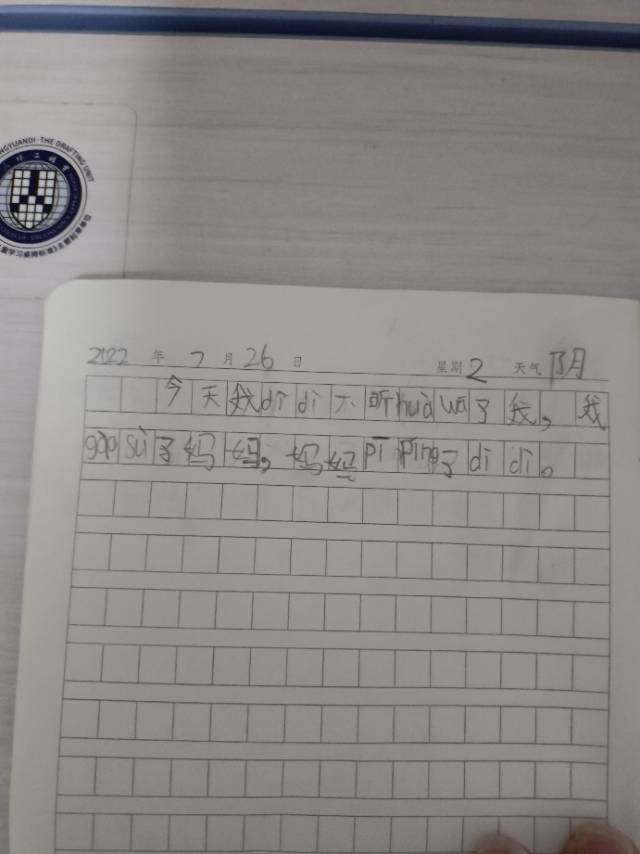 2022 年 7 月 26 日 星期 2 天气 阴
今天我dì di 不听huà wā了我,我
gào sù了妈妈,妈妈pī píng了dì di。